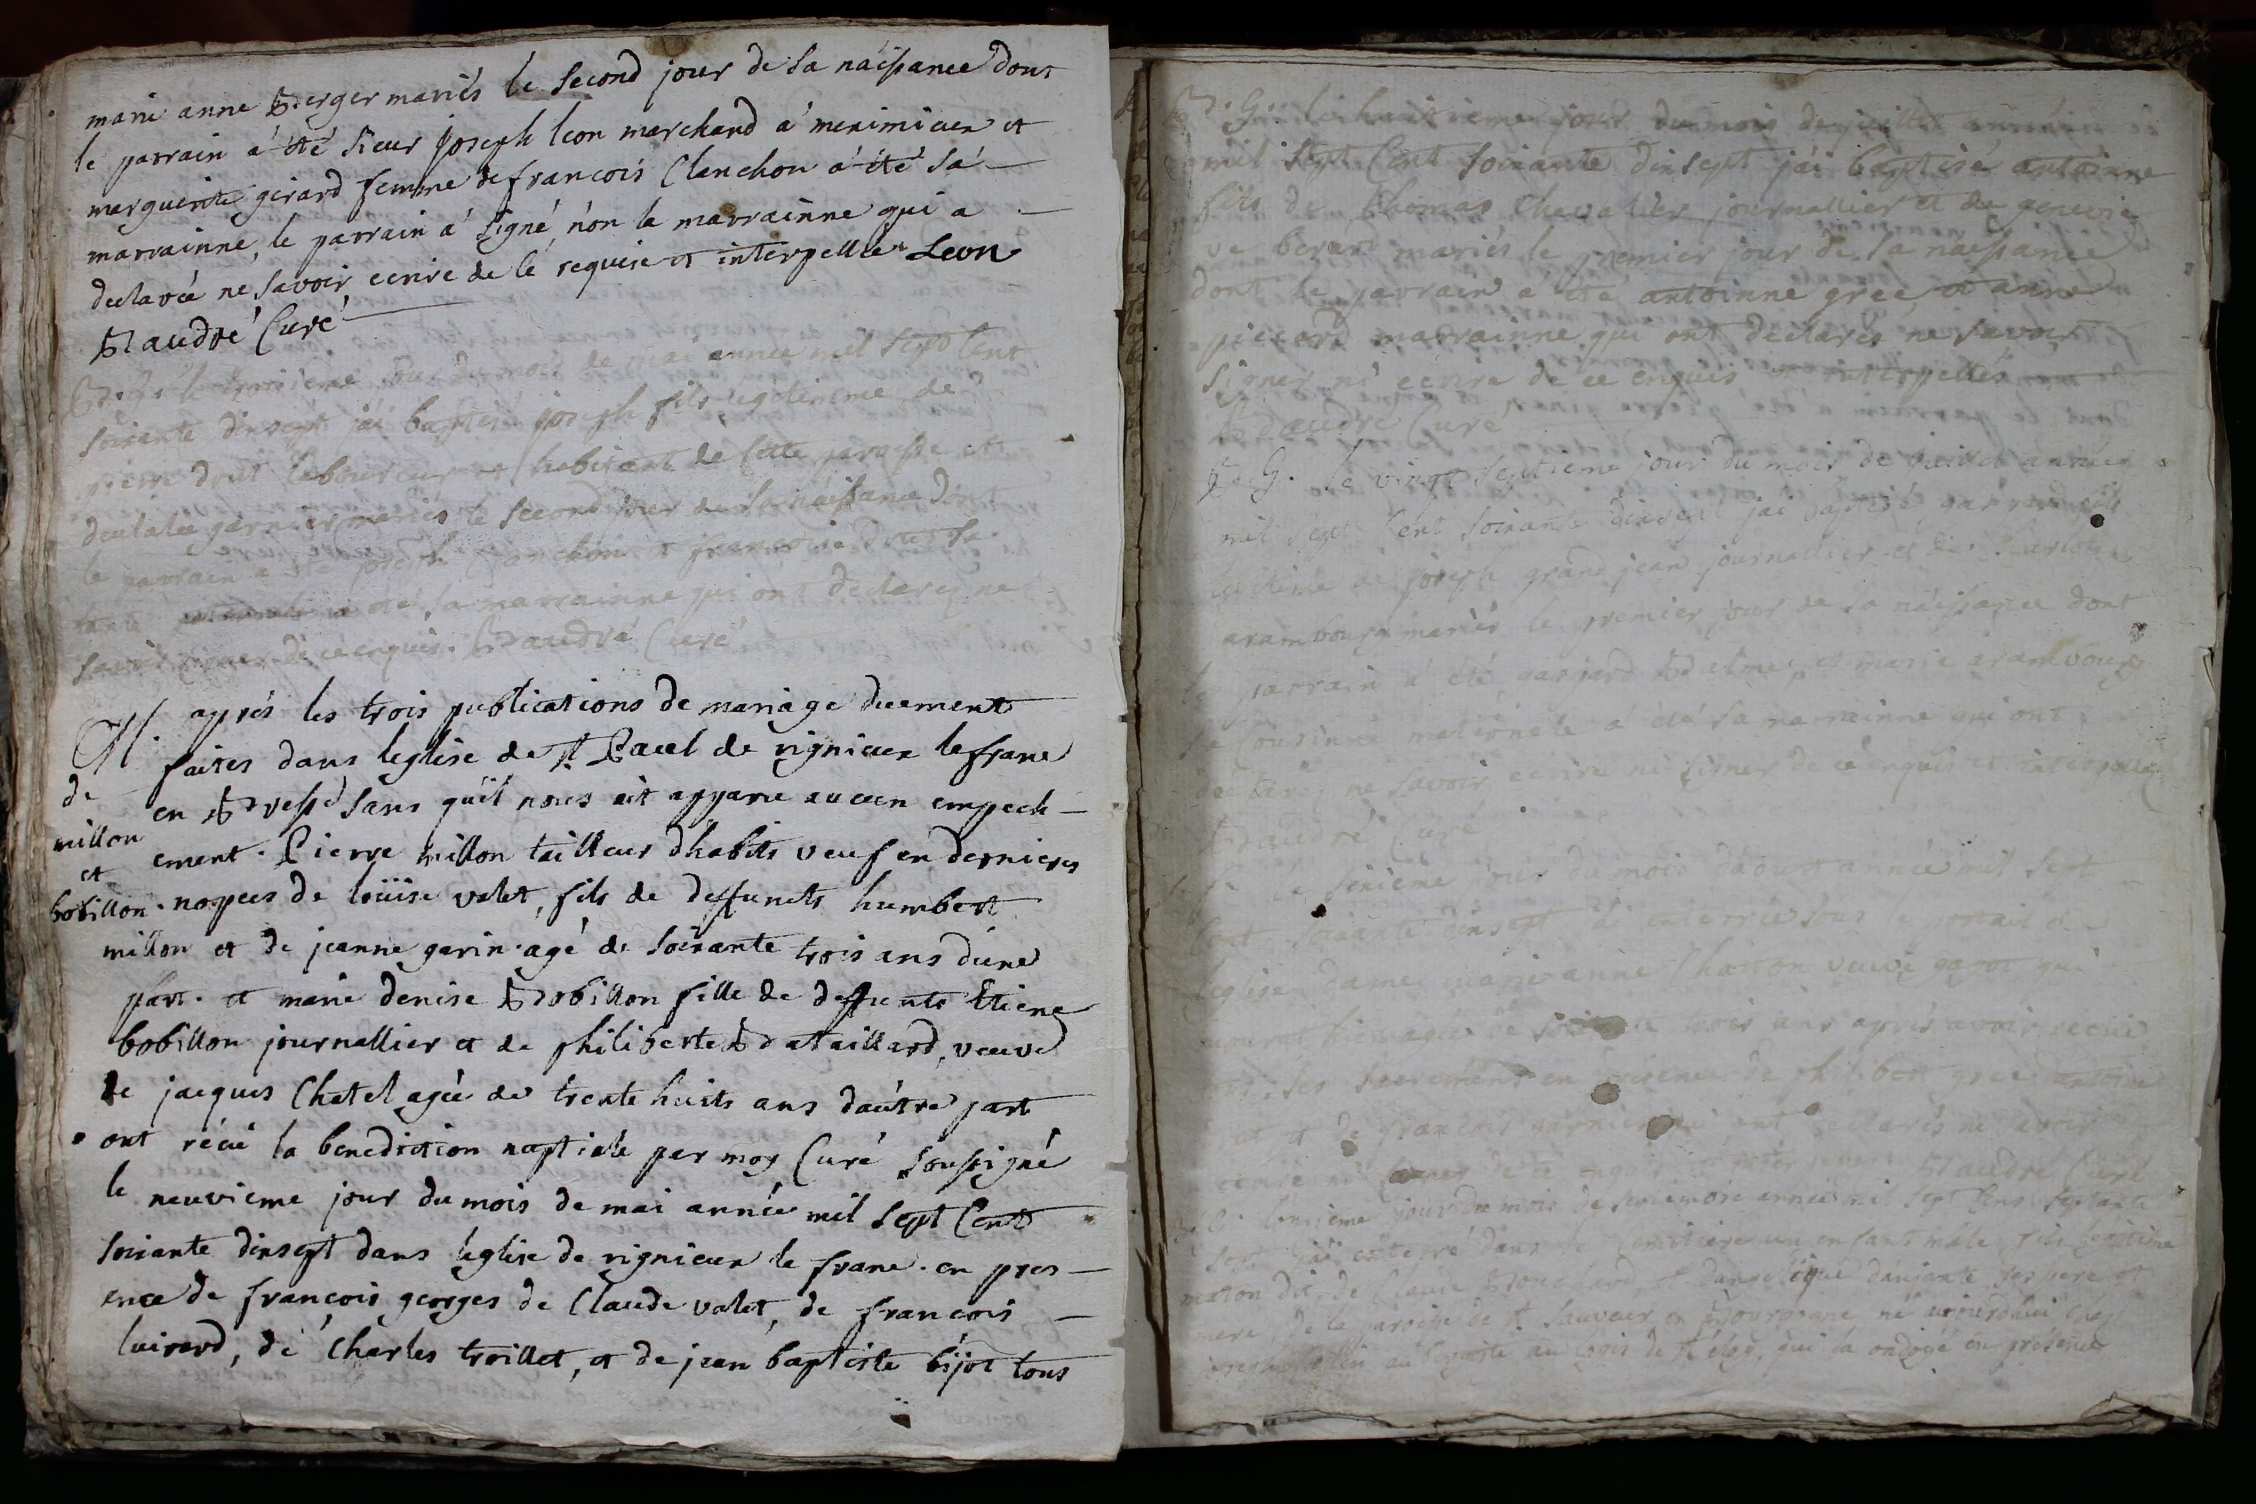 marie anne Berger mariés le second jour de sa naissance dont
le parrain a été sieur joseph leon marchand a meximieux et
marguerite girard femme de francois Clanchon a été sa
marrainne, le parrain a signé non la marrainne qui a
declarée ne savoir ecrire de ce requise et interpellée Leon
Baudré Curé
B. G. le troisieme jour du mois de mai année mil sept Cent
soixante dixsept j'ai baptisé joseph fils legitieme de
pierre drut laboureur et habitant de cette paroisse et
garnier mariés le second jour de sa naissance dont
le parrain a été joseph Clanchon et francoise drut sa
tante a été sa marrainne qui ont declarez ne
savoir signer de ce enquis. Baudré Curé
M. aprés les trois publications de mariage duement
faites dans leglise de St Paul de rignieux le franc
de
en Bresse sans quil nous ait apparu aucun empech
millon
et
ement. Pierre millon tailleur dhabits veuf en dernieres
bobillon. nopces de loüise valet, fils de deffuncts humbert
millon et de jeanne garin agé de soixante trois ans dune
part. et marie denise Bobillon fille de deffuncts Etiene
bobillon journallier et de philiberte Bataillard, veuve
de jacques Chatel agée de trente huits ans dautre part
ont récu la benediction nuptiale par moy Curé soussigné
le neuvieme jour du mois de mai année mil sept Cent
soixante dixsept dans leglise de rignieux le franc. en pres
ence de francois georges de Claude valet, de francois
luirard, de Charles troillet, et de jean baptiste bijot tous
B. G. le huitieme jour du mois de juillet année
mil sept Cent soixante dixsept j'ai baptisé antoinne
fils de thomas Chevalier journallier et de genevie
ve berard mariés le premier jour de sa naissance
dont le parrain a été antoinne gree et anne
piccard marrainne qui ont declarés ne savoir
signer ni ecrire de ce enquis et interpellés
Baudré Curé
B. G. le vingt septieme jour du mois de juillet année
mil sept Cent soixante dixsept j'ai baptisé gaspard fils
legitime de joseph grand jean journallier et de
arambourg mariés le premier jour de sa naissance dont
le parrain a été gaspard et marie arambourg
sa cousine maternele a été sa marrainne qui ont
declaré ne savoir ecrire ni signer de ce enquis et interpellés
Baudré Curé
le seixieme jour du mois daoust année mil sept
Cent soixante dixsept j'ai enterré sous le portail de
leglise dame marianne veuve qui
de soixante trois ans aprés avoir recue
ses sacrements en presence de philibert gree
et de francois garnier qui ont declarés ne savoir
ecrire ni signer de ce Baudré Curé
lonsieme jour du mois de septembre année mil sept Cens septante
sept j'ai enterré dans le Cemitiere un enfant male, fils legitime
de Claude et dangelique ses pere et
mere, de la paroisse de St sauveur en bourgogne, né aujourdhui chez
au bois de St eloy, qui la ondoyé en presence